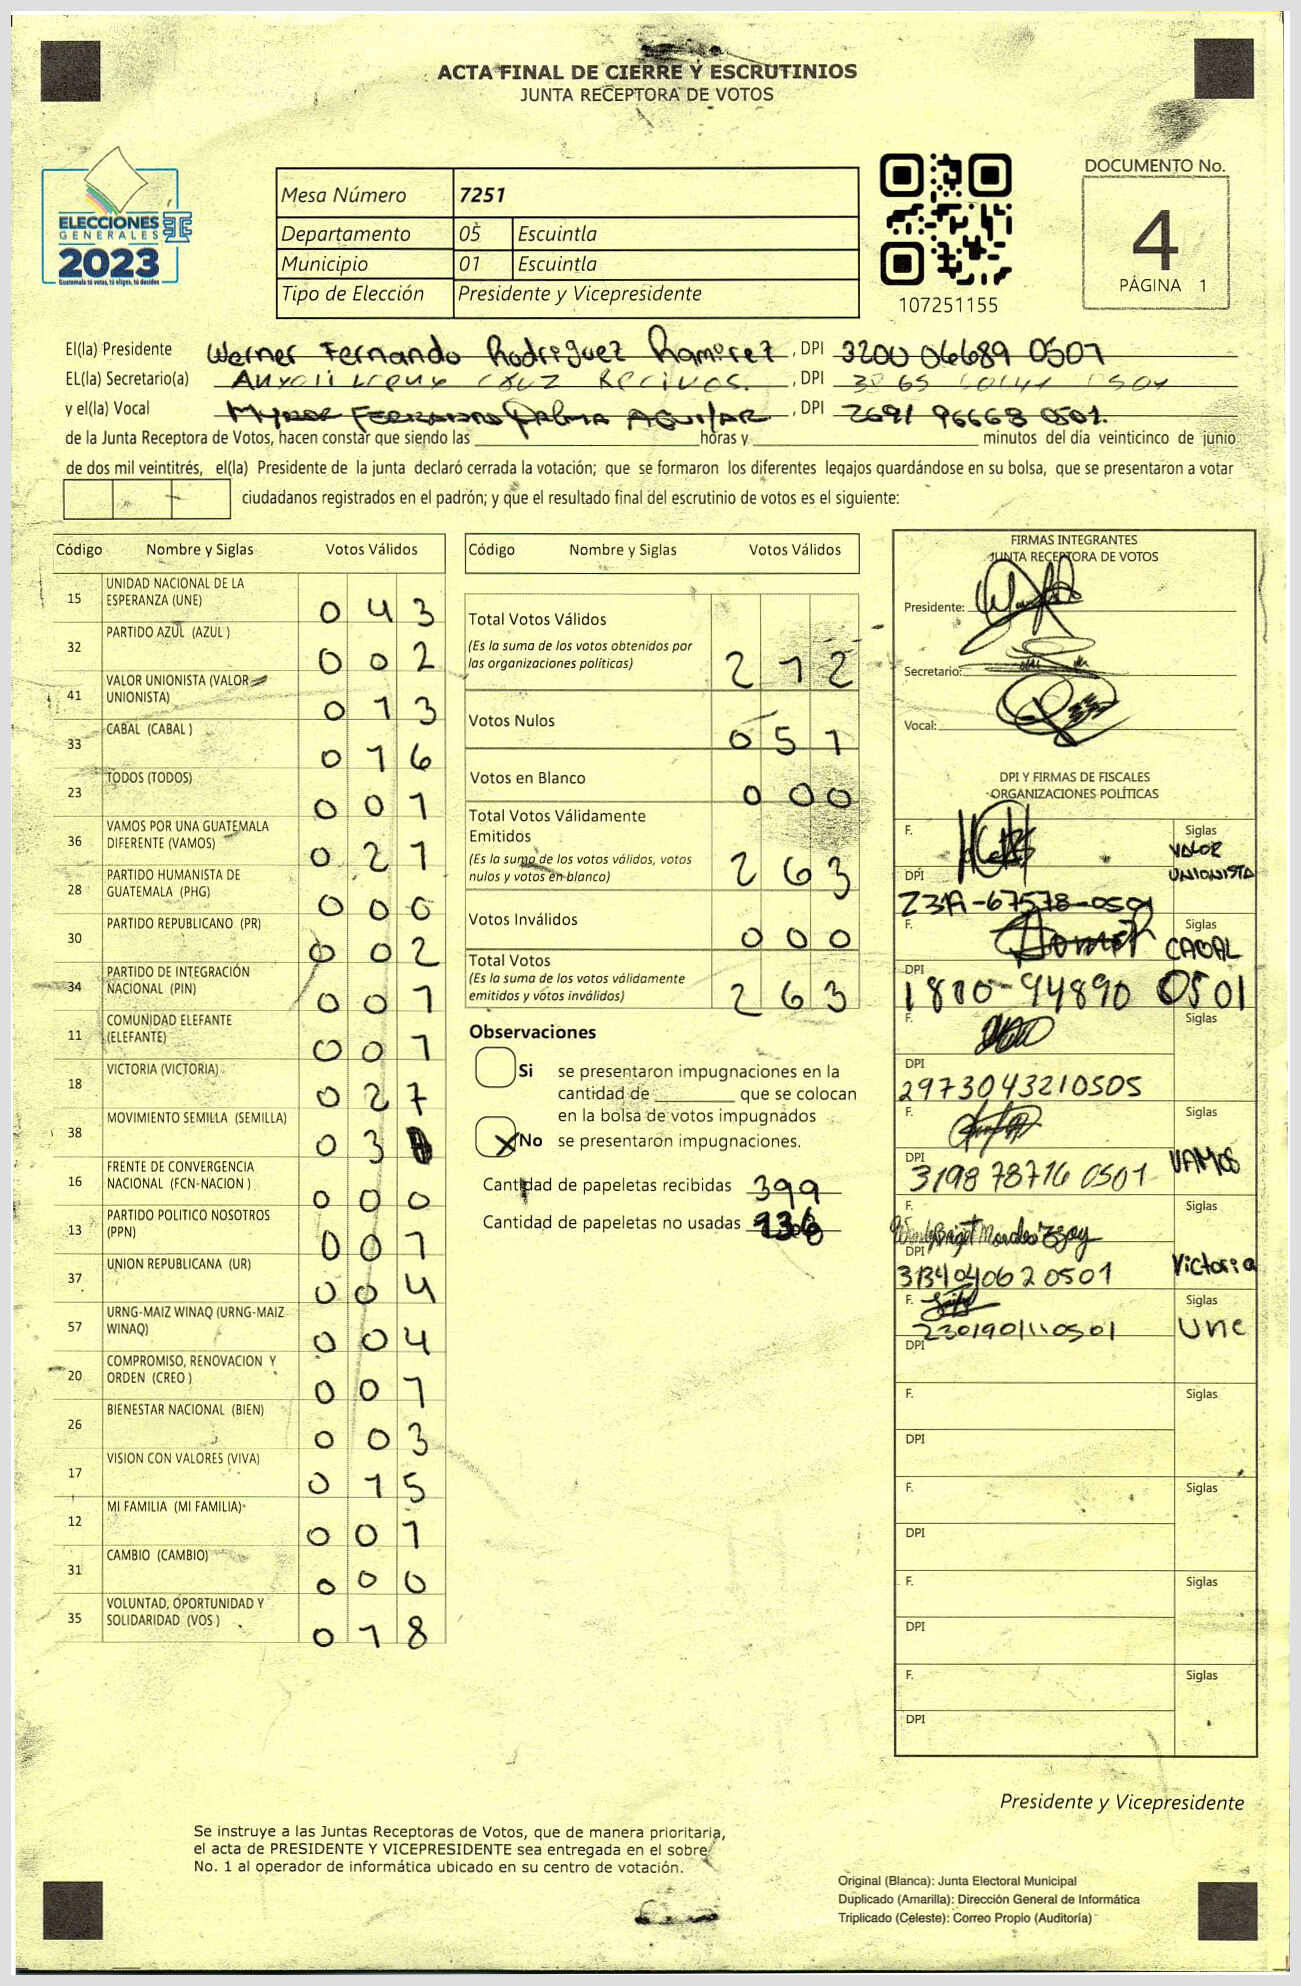 ACTA FINAL DE CIERRE Y ESCRUTINIOS
JUNTA RECEPTORA DE VOTOS
ELECCIONES
GENERALES
2023
Guatemala tú votas, tú eliges, tú decides
Mesa Número 7251
Departamento 05 Escuintla
Municipio 01 Escuintla
Tipo de Elección Presidente y Vicepresidente
107251155
DOCUMENTO No.
4
PÁGINA 1
El(la) Presidente Werner Fernando Rodriguez Ramirez, DPI 3200 06689 0501
EL(la) Secretario(a) , DPI
y el(la) Vocal Palma AGUILAR, DPI 2691 96668 0501.
de la Junta Receptora de Votos, hacen constar que siendo las horas y minutos del día veinticinco de junio
de dos mil veintitrés, el(la) Presidente de la junta declaró cerrada la votación; que se formaron los diferentes legajos guardándose en su bolsa, que se presentaron a votar
ciudadanos registrados en el padrón; y que el resultado final del escrutinio de votos es el siguiente:
Código Nombre y Siglas Votos Válidos
15 UNIDAD NACIONAL DE LA
ESPERANZA (UNE) 0 4 3
32 PARTIDO AZUL (AZUL ) 0 0 2
41 VALOR UNIONISTA (VALOR
UNIONISTA) 0 1 3
33 CABAL (CABAL ) 0 1 6
23 TODOS (TODOS) 0 0 1
36 VAMOS POR UNA GUATEMALA
DIFERENTE (VAMOS) 0 2 1
28 PARTIDO HUMANISTA DE
GUATEMALA (PHG) 0 0 0
30 PARTIDO REPUBLICANO (PR) 0 0 2
34 PARTIDO DE INTEGRACIÓN
NACIONAL (PIN) 0 0 1
11 COMUNIDAD ELEFANTE
(ELEFANTE) 0 0 1
18 VICTORIA (VICTORIA) 0 2 7
38 MOVIMIENTO SEMILLA (SEMILLA) 0 3
16 FRENTE DE CONVERGENCIA
NACIONAL (FCN-NACION ) 0 0 0
13 PARTIDO POLITICO NOSOTROS
(PPN) 0 0 1
37 UNION REPUBLICANA (UR) 0 0 4
57 URNG-MAIZ WINAQ (URNG-MAIZ
WINAQ) 0 0 4
20 COMPROMISO, RENOVACION Y
ORDEN (CREO ) 0 0 1
26 BIENESTAR NACIONAL (BIEN) 0 0 3
17 VISION CON VALORES (VIVA) 0 1 5
12 MI FAMILIA (MI FAMILIA) 0 0 1
31 CAMBIO (CAMBIO) 0 0 0
35 VOLUNTAD, OPORTUNIDAD Y
SOLIDARIDAD (VOS ) 0 1 8
Código Nombre y Siglas Votos Válidos
Total Votos Válidos
(Es la suma de los votos obtenidos por
las organizaciones políticas) 2 1 2
Votos Nulos 0 5 1
Votos en Blanco 0 0 0
Total Votos Válidamente
Emitidos
(Es la suma de los votos válidos, votos
nulos y votos en blanco) 2 6 3
Votos Inválidos 0 0 0
Total Votos
(Es la suma de los votos válidamente
emitidos y votos inválidos) 2 6 3
Observaciones
Si se presentaron impugnaciones en la
cantidad de que se colocan
en la bolsa de votos impugnados
X No se presentaron impugnaciones.
Cantidad de papeletas recibidas 399
Cantidad de papeletas no usadas
FIRMAS INTEGRANTES
JUNTA RECEPTORA DE VOTOS
Presidente:
Secretario:
Vocal:
DPI Y FIRMAS DE FISCALES
ORGANIZACIONES POLÍTICAS
F. Siglas
VALOR
UNIONISTA
DPI
F. Siglas
CABAL
DPI 1800-94890 0501
F. Siglas
DPI
2973043210505
F. Siglas
VAMOS
DPI
3198 78716 0501
F. Siglas
Victoria
DPI
3134040620501
F. Siglas
Une
2301901110501
DPI
F. Siglas
DPI
F. Siglas
DPI
F. Siglas
DPI
F. Siglas
DPI
Presidente y Vicepresidente
Se instruye a las Juntas Receptoras de Votos, que de manera prioritaria,
el acta de PRESIDENTE Y VICEPRESIDENTE sea entregada en el sobre
No. 1 al operador de informática ubicado en su centro de votación.
Original (Blanca): Junta Electoral Municipal
Duplicado (Amarilla): Dirección General de Informática
Triplicado (Celeste): Correo Propio (Auditoría)